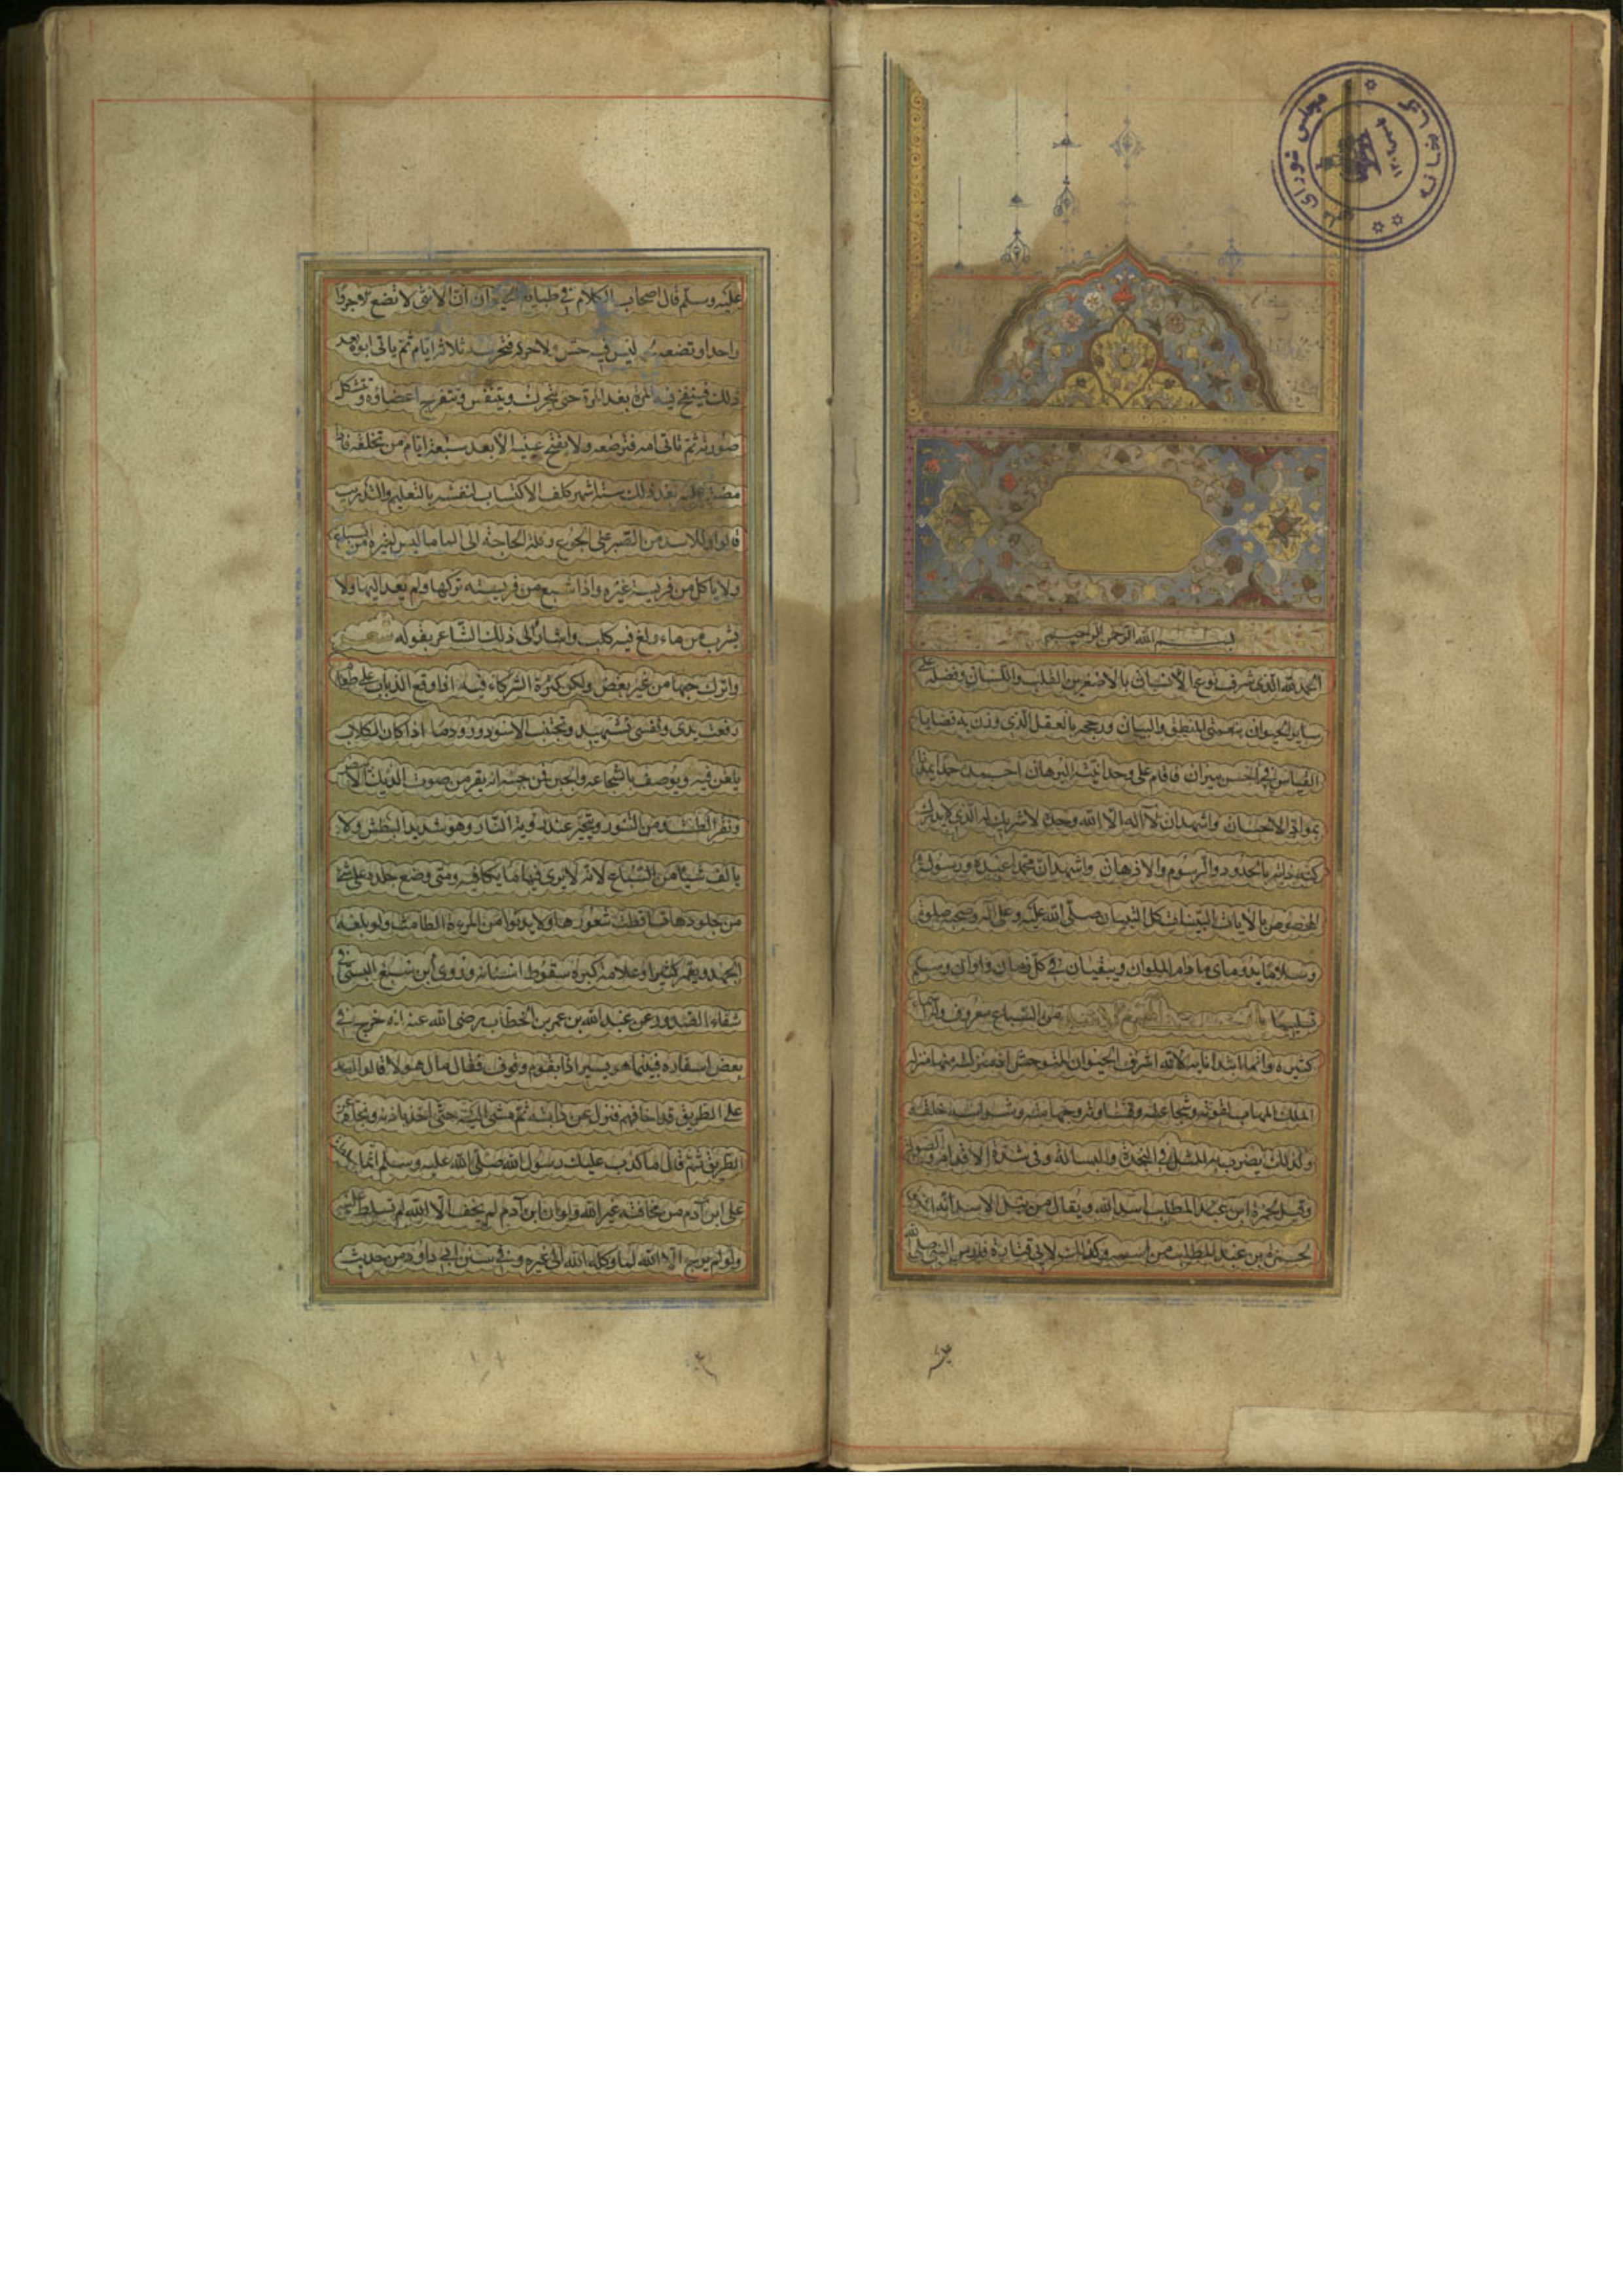 مجلس شورای ملی
کتابخانه
۱۳۰۲
بسم الله الرحمن الرحیم
الحمد لله الذی شرف نوع الانسان بالاصغرین القلب واللسان وفضله علی
سایر الحیوان بنعمتی المنطق والبیان ورجحه بالعقل الذی وزن به قضایا
القیاس فی احسن میزان فاقام علی وحدانیته البرهان احمده حمدا یمدنا
بمواد الاحسان واشهد ان لا اله الا الله وحده لا شریک له الذی لا یدرک
کنه ذاته بالحدود والرسوم والاذهان واشهد ان محمدا عبده ورسوله
المخصوص بالآیات البینات کل التبیان صلی الله علیه وعلی آله وصحبه صلوة
وسلاما یدومان ما دام الملوان ویبقیان فی کل زمان واوان وسلم
تسلیما من السباع معروف وله اسماء
کثیره وانما ابتدانا به لانه اشرف الحیوان المتوحش اذ منزلته منها منزلة
الملک المهاب لقوته وشجاعته وقساوته وجهامته وشراسة خلقه
وکذلک یضرب به المثل فی النجدة والبسالة وفی شدة الاقدام والصولة
وقیل لحمزة ابن عبد المطلب اسد الله ویقال من نبل الاسد انه اشتق
لحمزة بن عبد المطلب من اسمه وکذلک لابی قتادة فارس النبی صلی الله
علیه وسلم قال اصحاب الکلام فی طبایع الحیوان ان الانثی لا تضع الا جروا
واحدا وتضعه لیس فیه حس ولا حرکة فتحرسه ثلاثة ایام ثم یاتی ابوه بعد
ذلک فینفخ فیه المرة بعد المرة حتی یتحرک ویتنفس وتنفرج اعضاؤه وتشکل
صورته ثم تاتی امه فترضعه ولا یفتح عینیه الا بعد سبعة ایام من تخلقه فاذا
مضت علیه بعد ذلک ستة اشهر کلف الاکتساب لنفسه بالتعلیم والتدریب
قالوا وللاسد من الصبر علی الجوع وقلة الحاجة الی الماء ما لیس لغیره من السباع
ولا یاکل من فریسة غیره واذا شبع من فریسته ترکها ولم یعد الیها ولا
یشرب من ماء ولغ فیه کلب واشار الی ذلک الشاعر بقوله شعر
واترک حبها من غیر بغض ولکن کثرة الشرکاء فیه اذا وقع الذباب علی طعام
رفعت یدی ونفسی تشتهیه وتجتنب الاسود ورود ماء اذا کان الکلاب
یلغن فیه ویوصف بالشجاعة والجبن فمن جبنه انه یفر من صوت الدیک
ونقر الطشت ومن السنور ویتحیر عند رویة النار وهو شدید البطش ولا
یالف شیئا من السباع لانه لا یری فیها ما یکافیه ومتی وضع جلده علی شئ
من جلودها تساقطت شعورها ولا یدنو من المرءة الطامث ولو بلغه
الجهد ویعمر کثیرا وعلامة کبره سقوط اسنانه وروی ابن سبع البستی فی
شفاء الصدور عن عبد الله بن عمر بن الخطاب رضی الله عنه انه خرج فی
بعض اسفاره فبینما هو یسیر اذا بقوم وقوف فقال ما ل هولا قالوا اسد
علی الطریق قد اخافهم فنزل عن دابته ثم مشی الیه حتی اخذ باذنه ونحاه عن
الطریق ثم قال ما کذب علیک رسول الله صلی الله علیه وسلم انما سلطت
علی ابن آدم من مخافته غیر الله ولو ان ابن آدم لم یخف الا الله لم تسلط علیه
ولو لم یرج الا الله لما وکله الله الی غیره وفی سنن ابی داود من حدیث